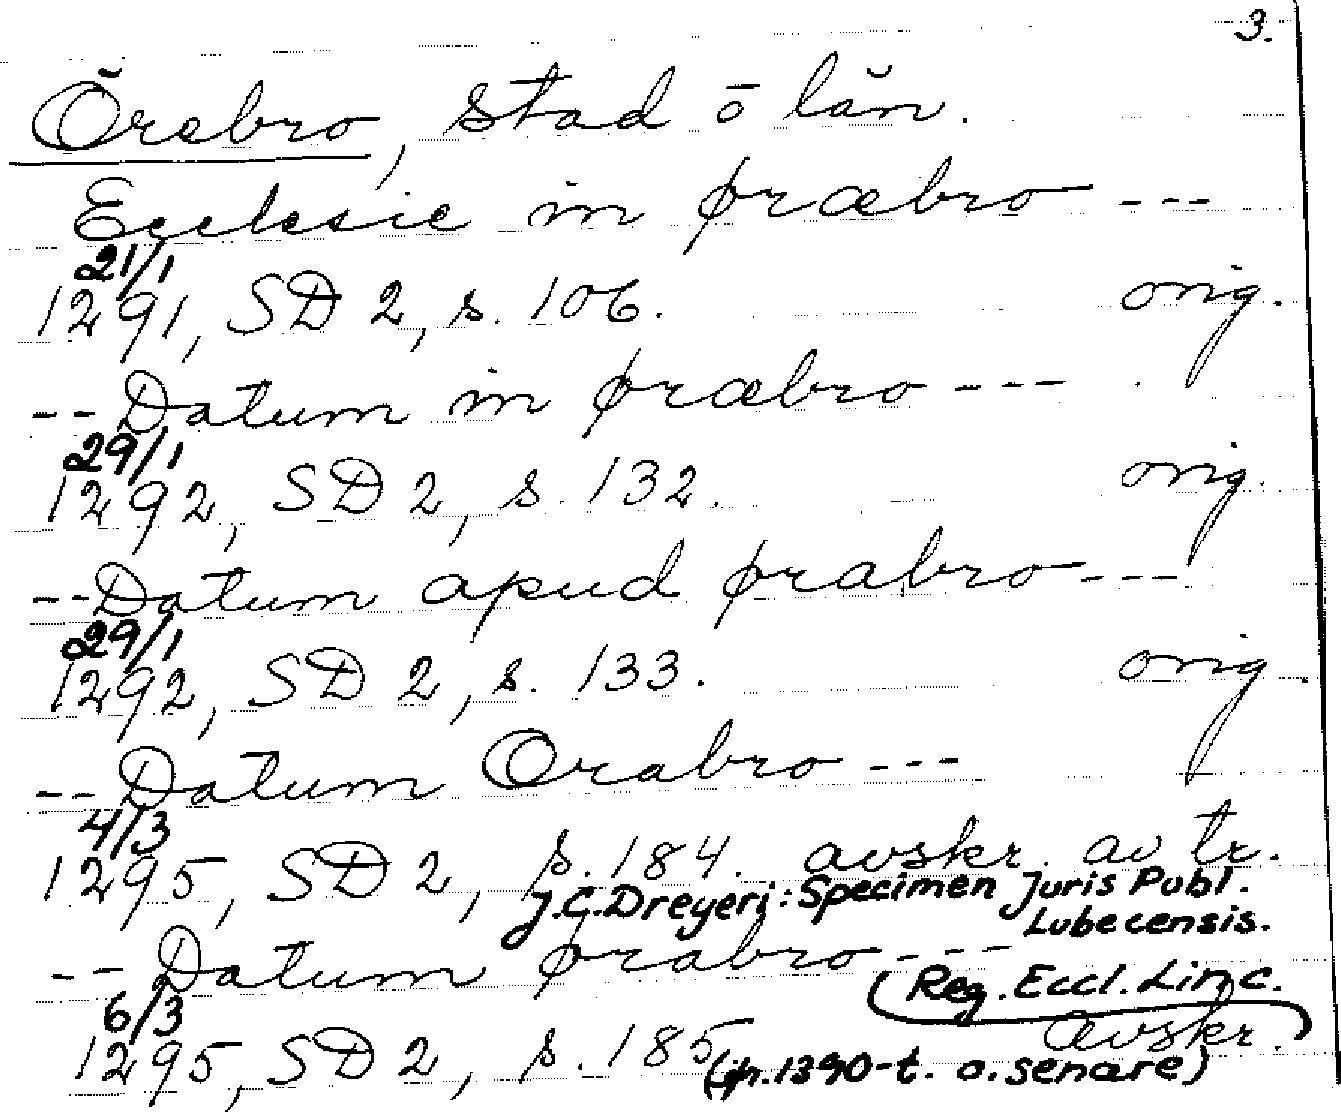 3.
Örebro, stad ō län.
Ecclesie in øræbro ---
21/1
1291, SD 2, s. 106. orig.
-- Datum in øræbro ---
29/1
1292, SD 2, s. 132. orig.
-- Datum apud ørabro ---
29/1
1292, SD 2, s. 133. orig
-- Datum Orabro ---
4/3
1295, SD 2, s. 184. avskr. av tr.
J.C. Dreyeri: Specimen Juris Publ.
Lubecensis.
-- Datum ørabro ---
(Reg. Eccl. Linc.
6/3
1295, SD 2, s. 185 avskr.)
1390-t. o. senare)